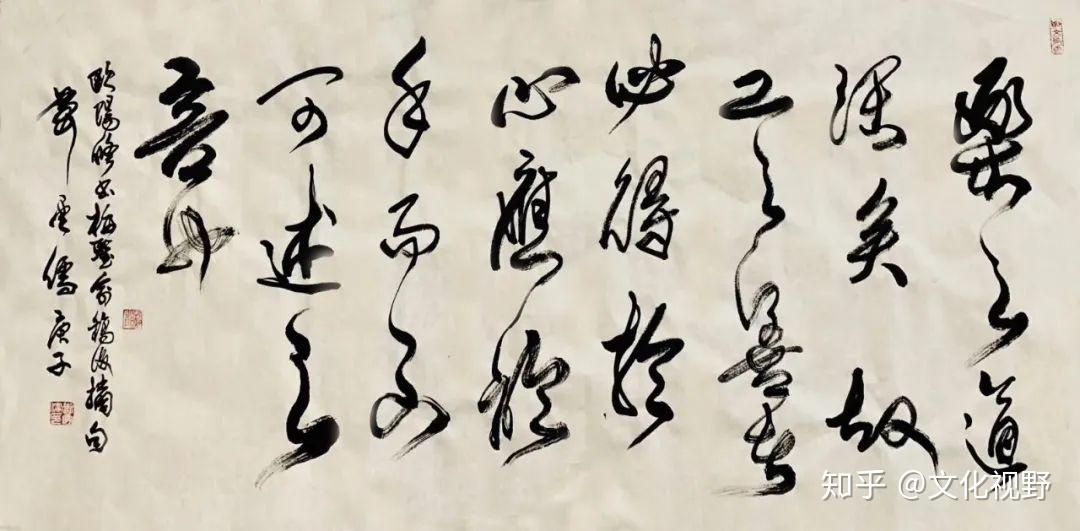 樂之道
深矣故
工之善者
必得於
心應於
手而不
可述之
言也
歐陽脩書梅聖俞稿後摘句
儒庚子
知乎 @文化视野